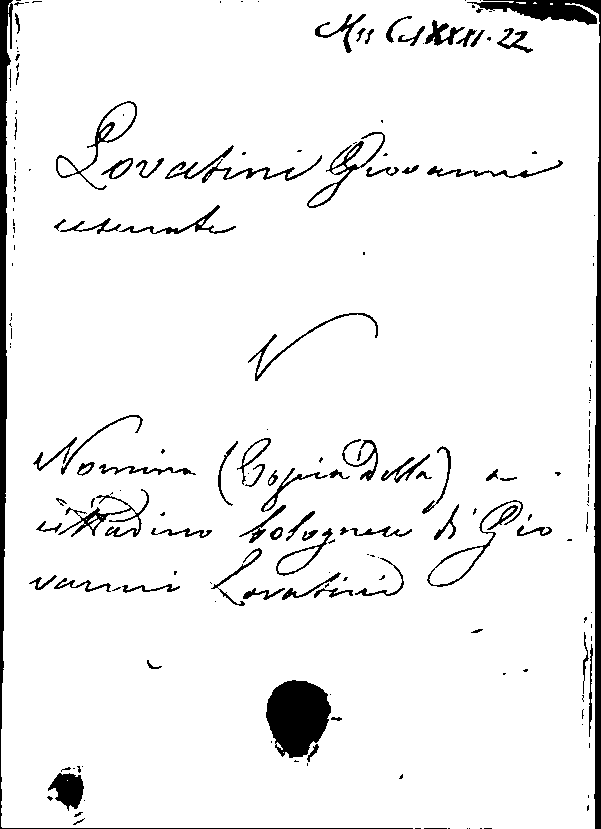 Mss CLXXXII. 22
Lovatini Giovanni
cesenate
V
Nomina (Copia della) a
cittadino bolognese di Gio
vanni Lovatini